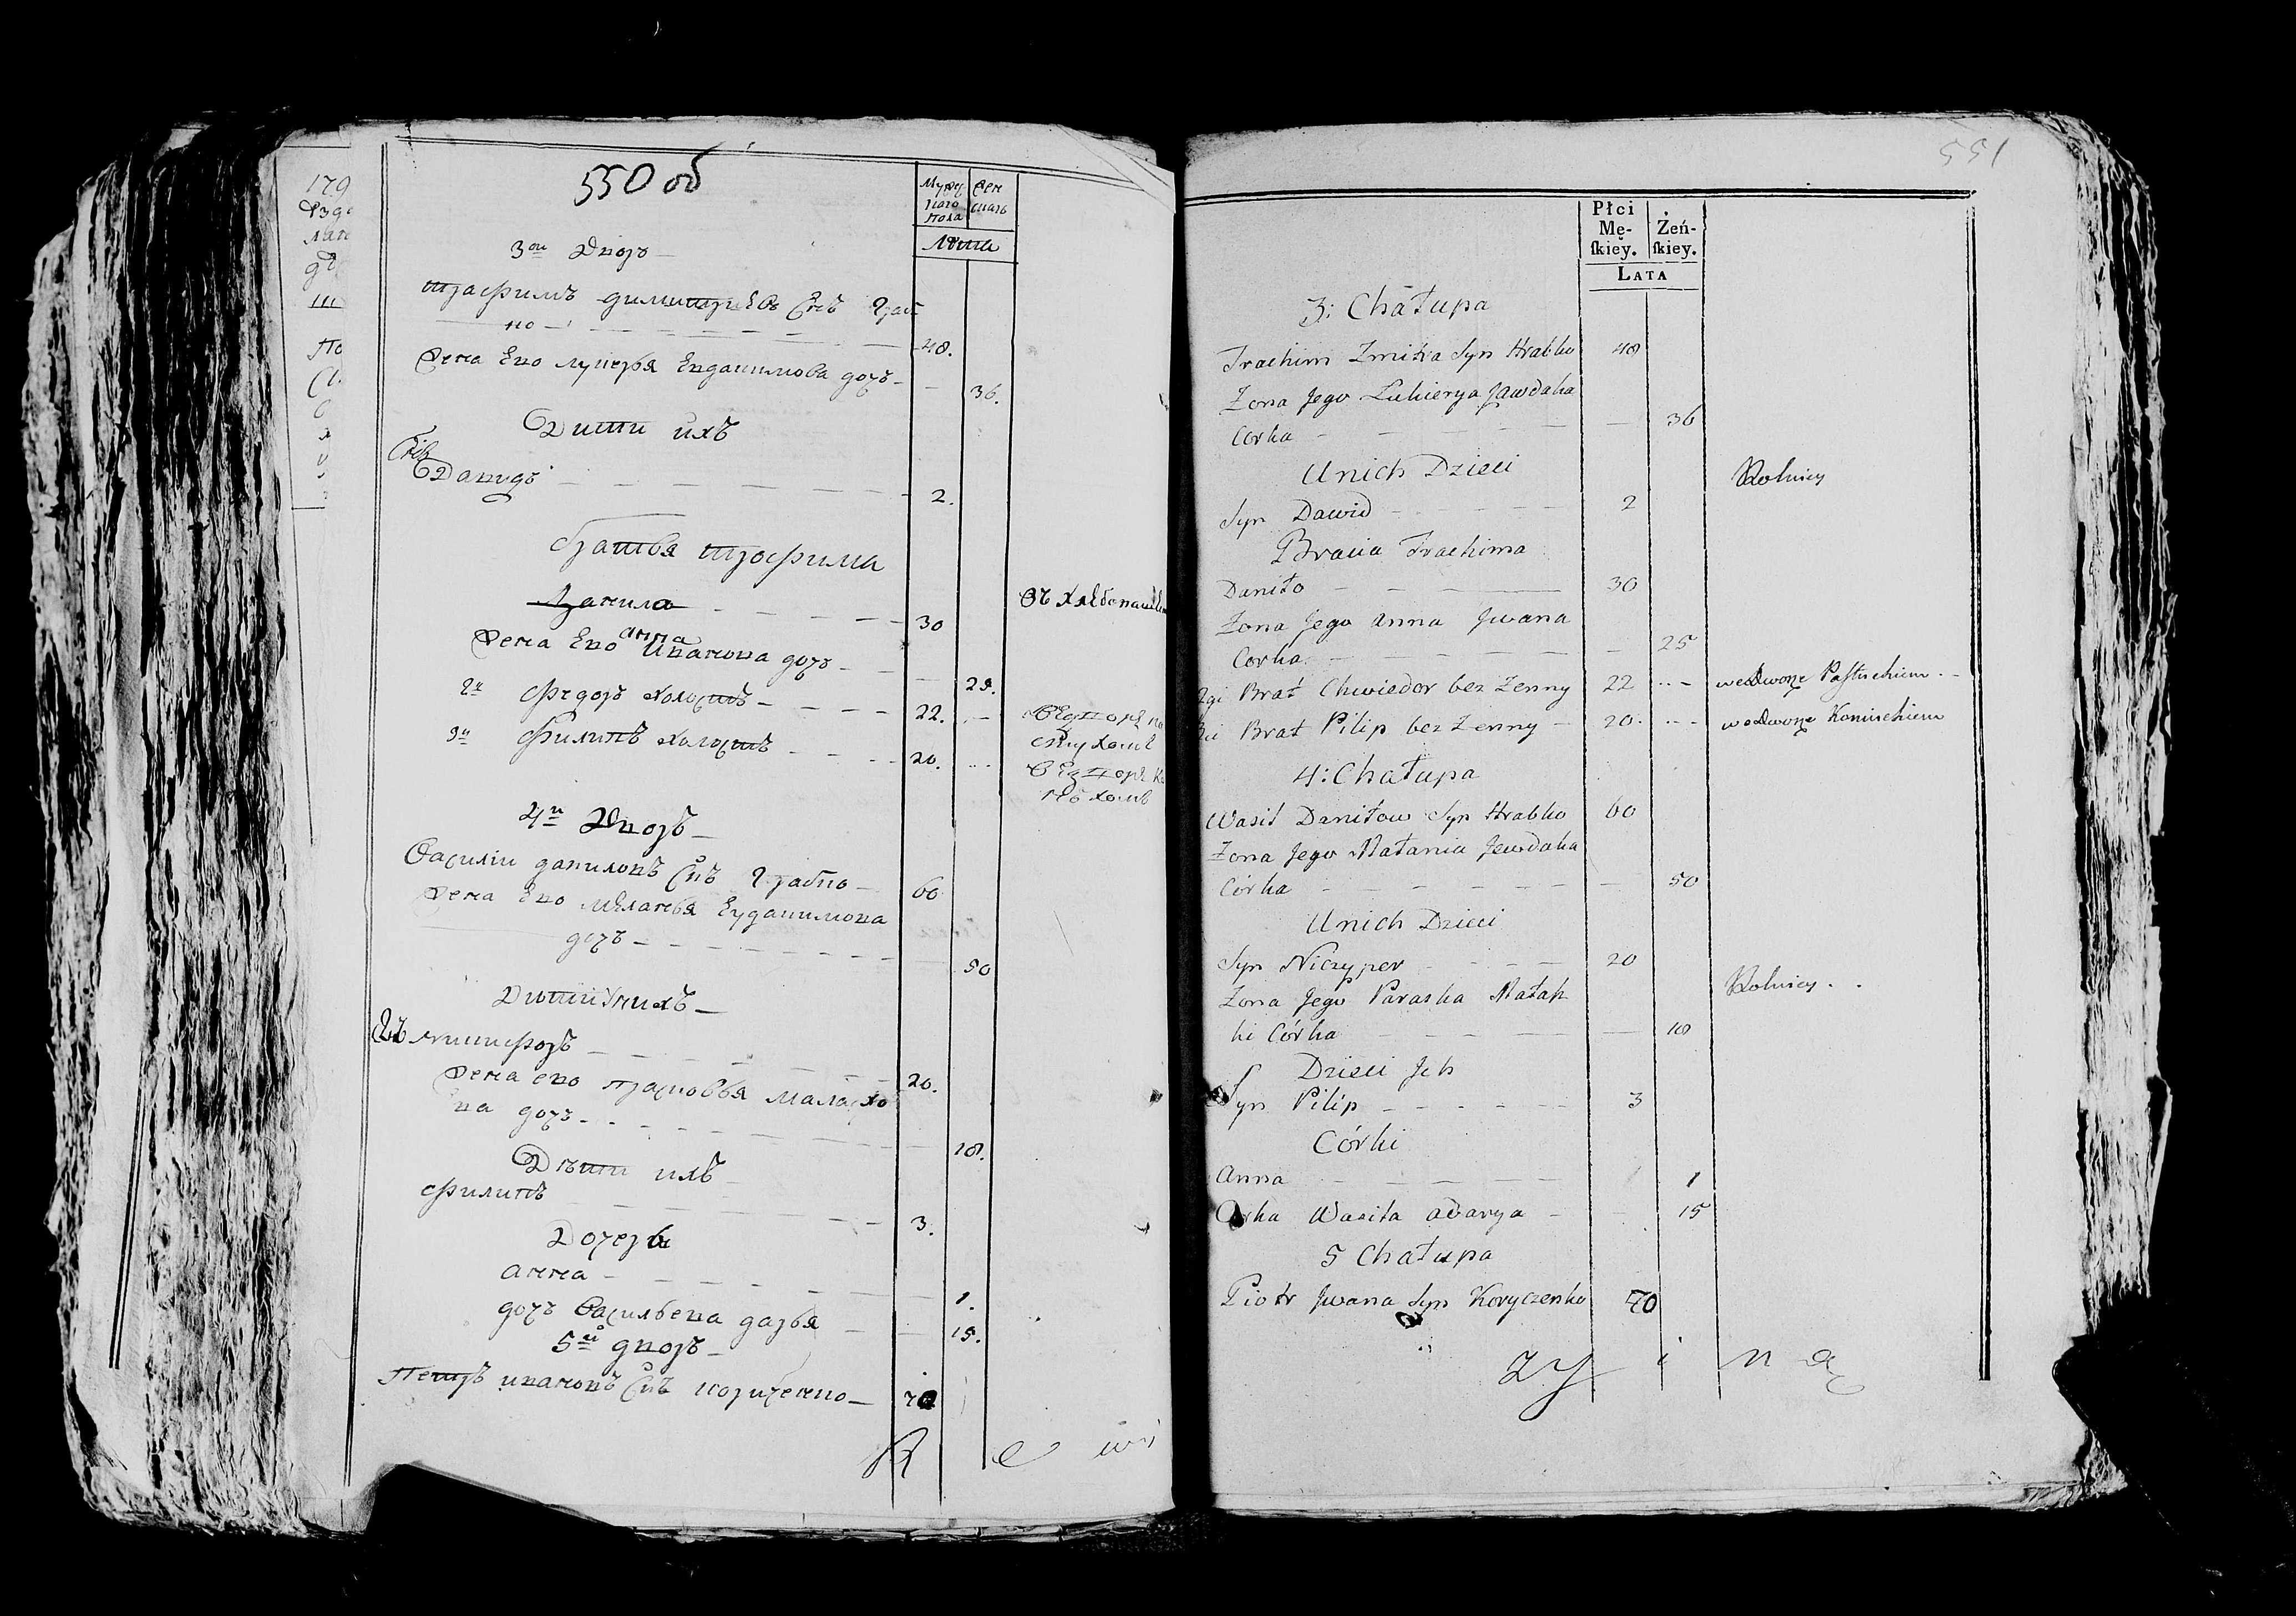 550 об
Мужес
каго
пола
Жен
скаго
Лѣта
3ои Дворъ
трафимъ димитриевъ Снъ Граб
ко
48.
Жена Ево лукерья Евдакимова дочь
36.
Дети ихъ
Снъ
Давидъ
2.
братья трофима
Данила
30
анна
Жена Ево Иванова дочь
25.
2й Федоръ холостъ
22.
3й Филипъ холостъ
20.
4й Дворъ
Василіи даниловъ Снъ Грабко
60
Жена Ево меланья Еудакимова
дочь
50
Дети У нихъ
Снъ никифоръ
20.
Жена ево прасковья
ва дочь
18.
Дети ихъ
филипъ
3.
Дочери
анна
1.
дочь Васильева дарья
15.
5й дворъ
Петръ ивановъ Снъ кориченко
70
551
Płci
Mę-
skiey.
Żeń-
skiey.
LATA
3: Chałupa
Trachim Zmitra Syn Hrabko 48
Zona Jego Lukierya Jawdaka
Corka 36
Unich Dzieci
Rolnicy
Syn Dawid 2
Bracia Trachima
Daniło 30
Zona Jego Anna Jwana
Corka 25
2gi Brat Chwiedor bez Zenny 22 wedworze Pastuchiem
Brat Pilip bez Zenny 20 wedworze Koniuchiem
4: Chałupa
Wasil Daniłow Syn Hrabko 60
Zona Jego Małania Jewdaka
Córka 50
Unich Dzieci
Syn Niczyper 20
Rolnicy
Zona Jego Paraska Małah
ki Córka 18
Dzieci Jch
Syn Pilip 3
Córki
Anna 1
Corka Wasila Adarya 15
5 Chałupa
Piotr Jwana Syn Koryczenko 70